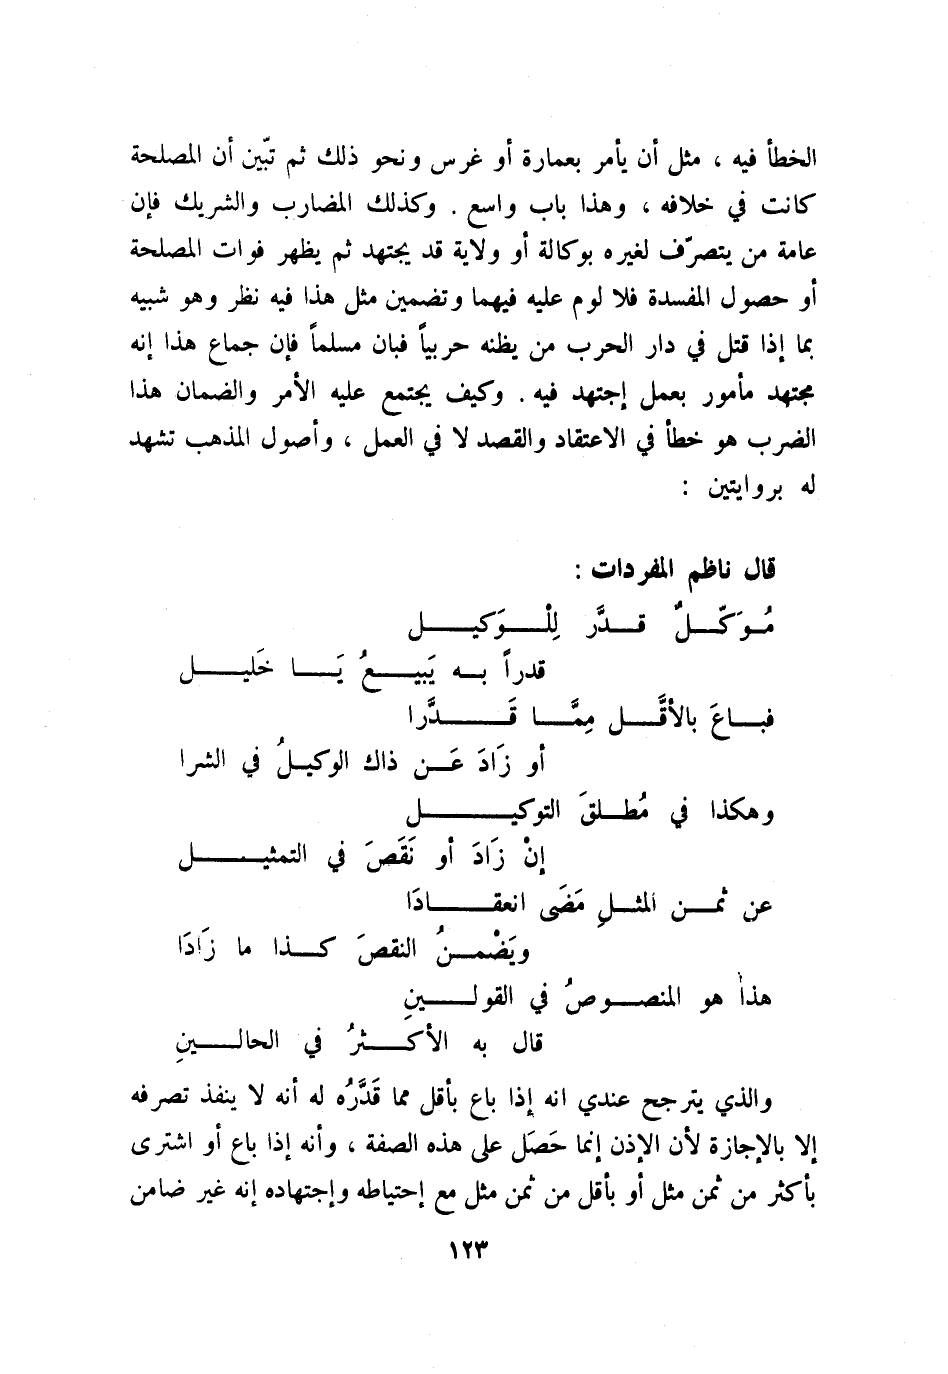 الخطأ فيه ، مثل أن يأمر بعمارة أو غرس ونحو ذلك ثم تبّين أن المصلحة
كانت في خلافه ، وهذا باب واسع . وكذلك المضارب والشريك فإن
عامة من يتصرّف لغيره بوكالة أو ولاية قد يجتهد ثم يظهر فوات المصلحة
أو حصول المفسدة فلا لوم عليه فيهما وتضمين مثل هذا فيه نظر وهو شبيه
بما إذا قتل في دار الحرب من يظنه حربياً فبان مسلماً فإن جماع هذا إنه
مجتهد مأمور بعمل إجتهد فيه . وكيف يجتمع عليه الأمر والضمان هذا
الضرب هو خطأ في الاعتقاد والقصد لا في العمل ، وأصول المذهب تشهد
له بروايتين :
قال ناظم المفردات :
مُوَكّلٌ قدَّر لِلْوَكيل
قدراً به يَبيعُ يَا خَليل
فباعَ بالأقَّل مِمَّا قَدَّرا
أو زَادَ عَن ذاك الوكيلُ في الشرا
وهكذا في مُطلقَ التوكيل
إنْ زَادَ أو نَقَصَ في التمثيل
عن ثمن المثلِ مَضَى انعقادَا
ويَضْمنُ النقصَ كذا ما زَادَا
هذا هو المنصوصُ في القولينِ
قال به الأكثرُ في الحالينِ
والذي يترجح عندي انه إذا باع بأقل مما قَدَّرُه له أنه لا ينفذ تصرفه
إلا بالإجازة لأن الإذن إنما حَصَل على هذه الصفة ، وأنه إذا باع أو اشترى
بأكثر من ثمن مثل أو بأقل من ثمن مثل مع إحتياطه وإجتهاده إنه غير ضامن
١٢٣